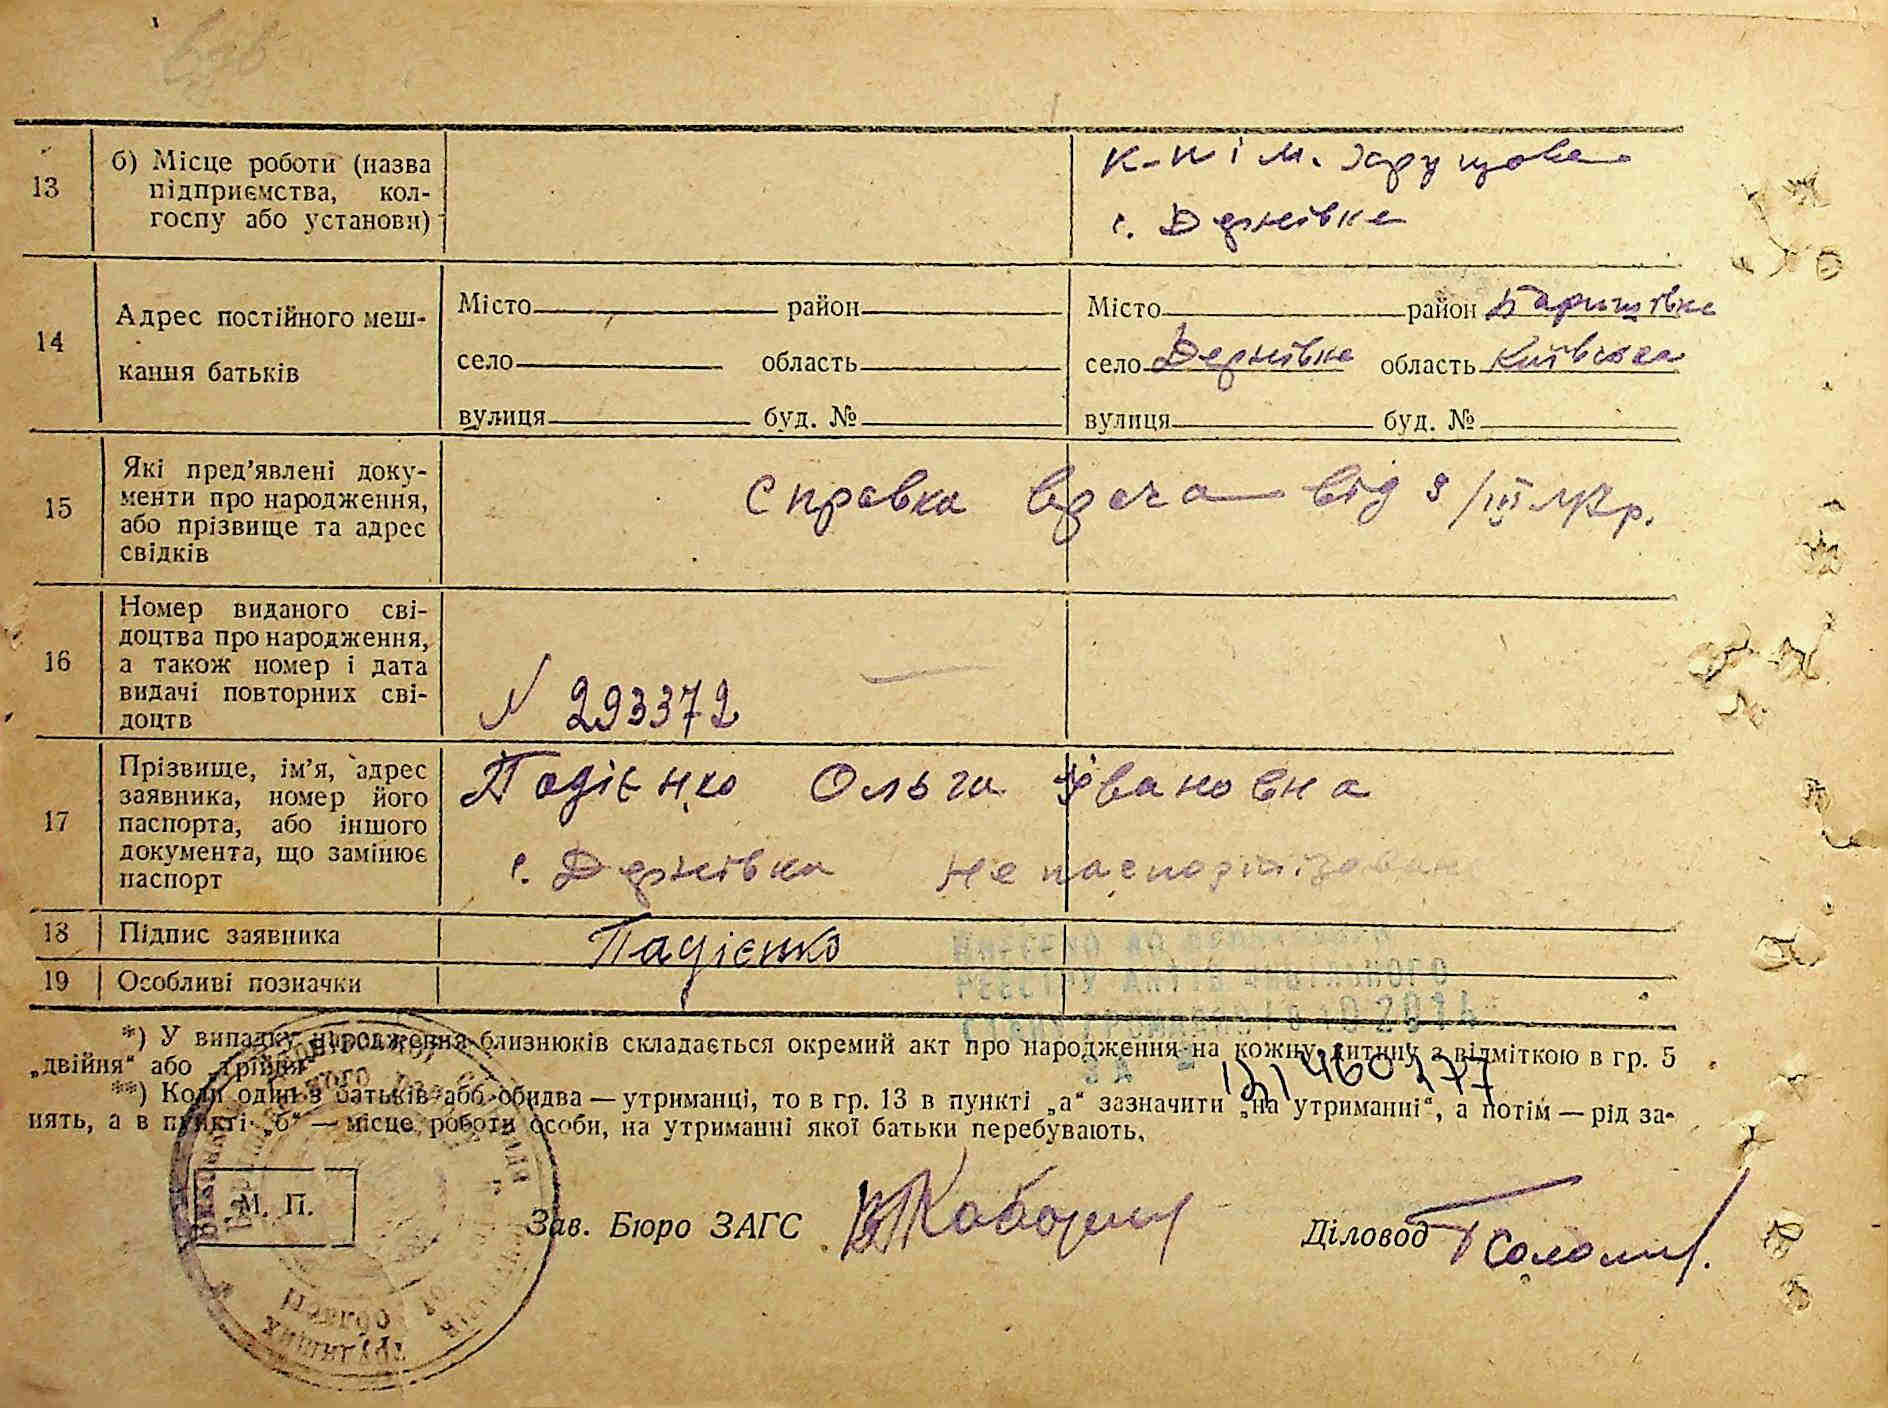 13
б) Місце роботи (назва
підприємства, кол-
госпу або установи)
к-п ім. Хрущова
с. Дернівка
14
Адрес постійного меш-
кання батьків
Місто район
село область
вулиця буд. №
Місто район Баришівка
село Дернівка область Київська
вулиця буд. №
15
Які пред'явлені доку-
менти про народження,
або прізвище та адрес
свідків
Справка врача від 8/III
16
Номер виданого сві-
доцтва про народження,
а також номер і дата
видачі повторних сві-
доцтв
N 293372
17
Прізвище, ім'я, адрес
заявника, номер його
паспорта, або іншого
документа, що замінює
паспорт
Падієнко Ольга Івановна
с. Дернівка Не паспортизована
18 Підпис заявника Падієнко
19 Особливі позначки
ВНЕСЕНО ДО ДЕРЖАВНОГО
РЕЄСТРУ АКТІВ ЦИВІЛЬНОГО
СТАНУ ГРОМАДЯН 2014
ЗА №
*) У випадку народження близнюків складається окремий акт про народження на кожну дитину з відміткою в гр. 5
„двійня“ або „трійня“
**) Коли один з батьків або обидва — утриманці, то в гр. 13 в пункті „а“ зазначити „на утриманні“, а потім — рід за-
нять, а в пункті „б“ — місце роботи особи, на утриманні якої батьки перебувають.
М. П.
Зав. Бюро ЗАГС
Діловод
області
трудящих